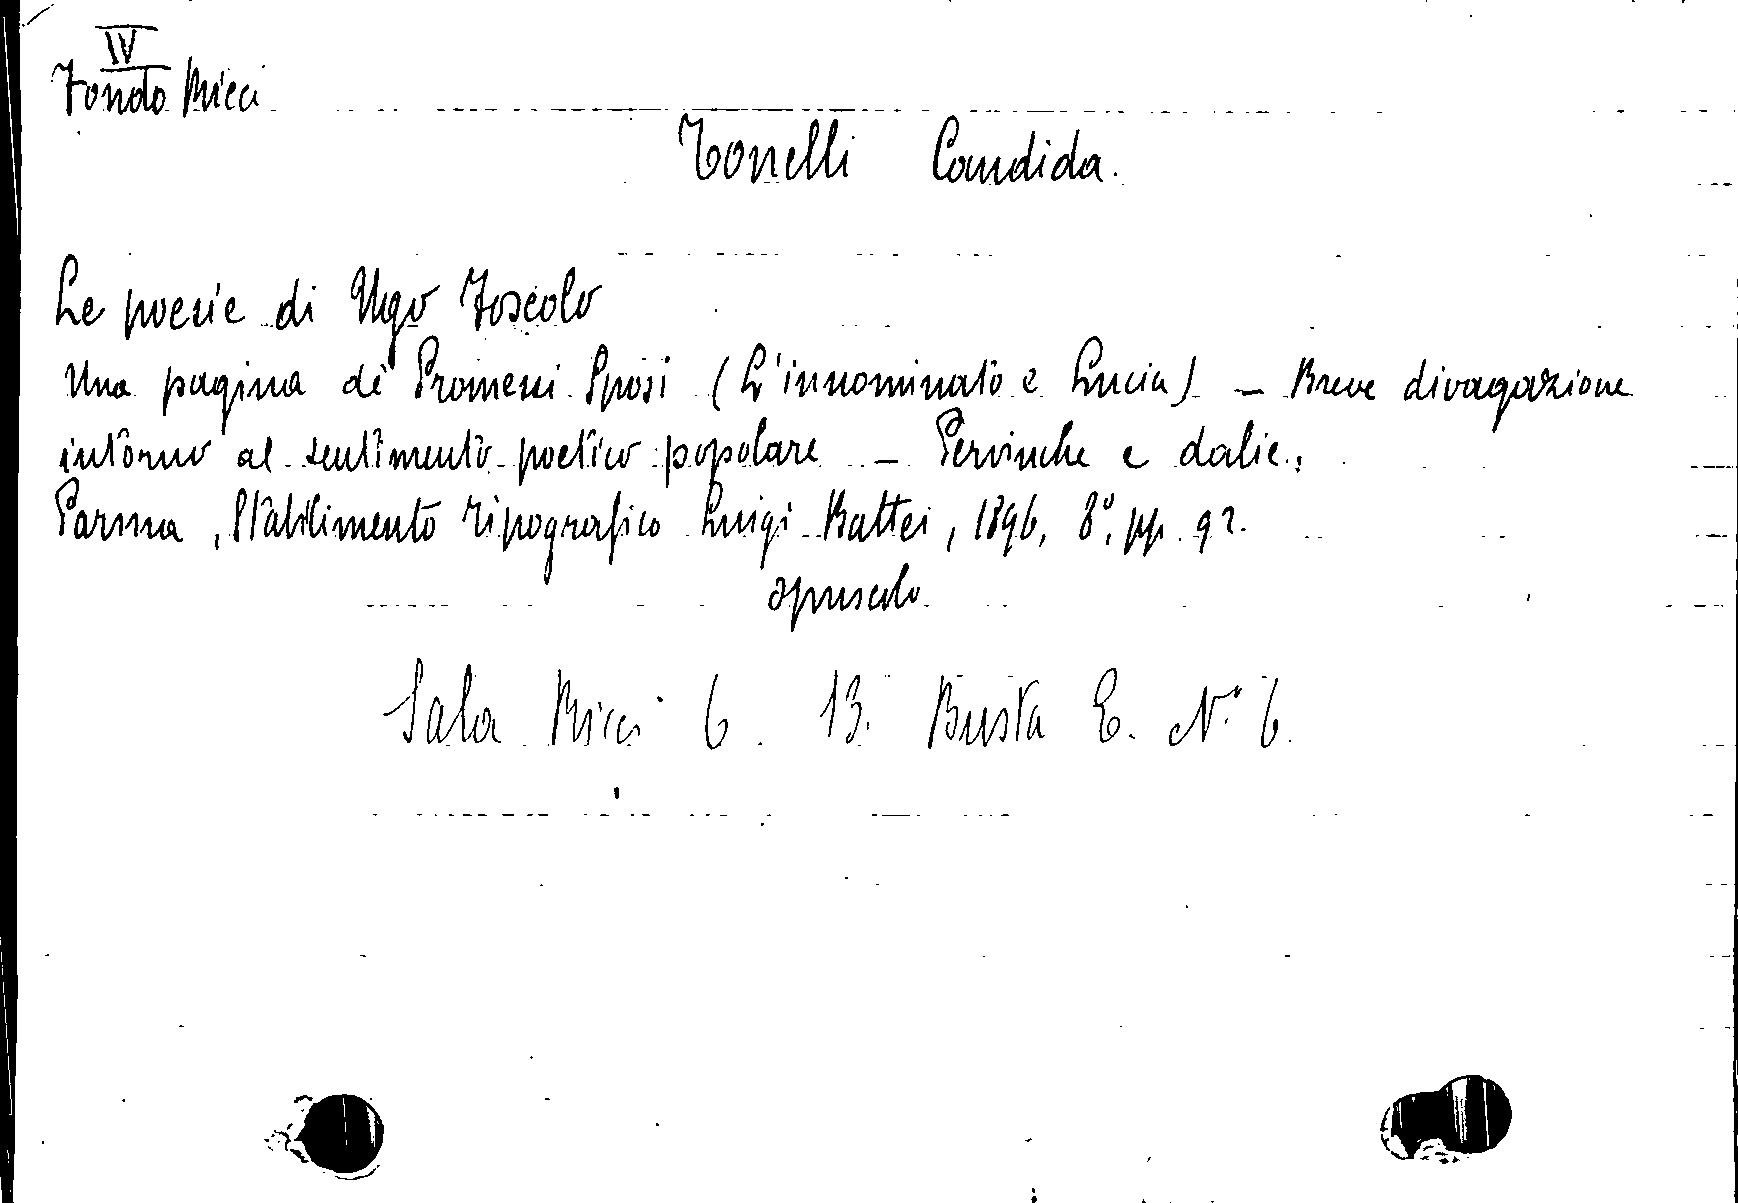 IV
Fondo Ricci
Tonelli Candida.
Le poesie di Ugo Foscolo
Una pagina dei Promessi Sposi (L'innominato e Lucia) - Breve divagazione
intorno al sentimento poetico popolare - Pervinche e dalie.,
Parma, Stabilimento Tipografico Luigi Battei, 1896, 8°, pp. 92.
opuscolo
Sala Ricci 6. 13. Busta E. N.° 6.